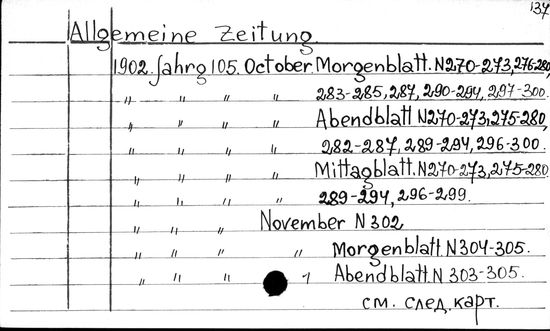 137
Allgemeine Zeitung
1902. Jahrg 105. October. Morgenblatt. N270-273, 276-280,
" " " " 283-285, 287, 290-294, 297-300.
" " " " Abendblatt N270-273, 275-280,
" " " " 282-287, 289-294, 296-300.
" " " " Mittagblatt. N270-273, 275-280
" " " " 289-294, 296-299.
" " " November N 302
" " " " Morgenblatt. N304-305.
" " " 1 Abendblatt. N 303-305.
см. след. карт.